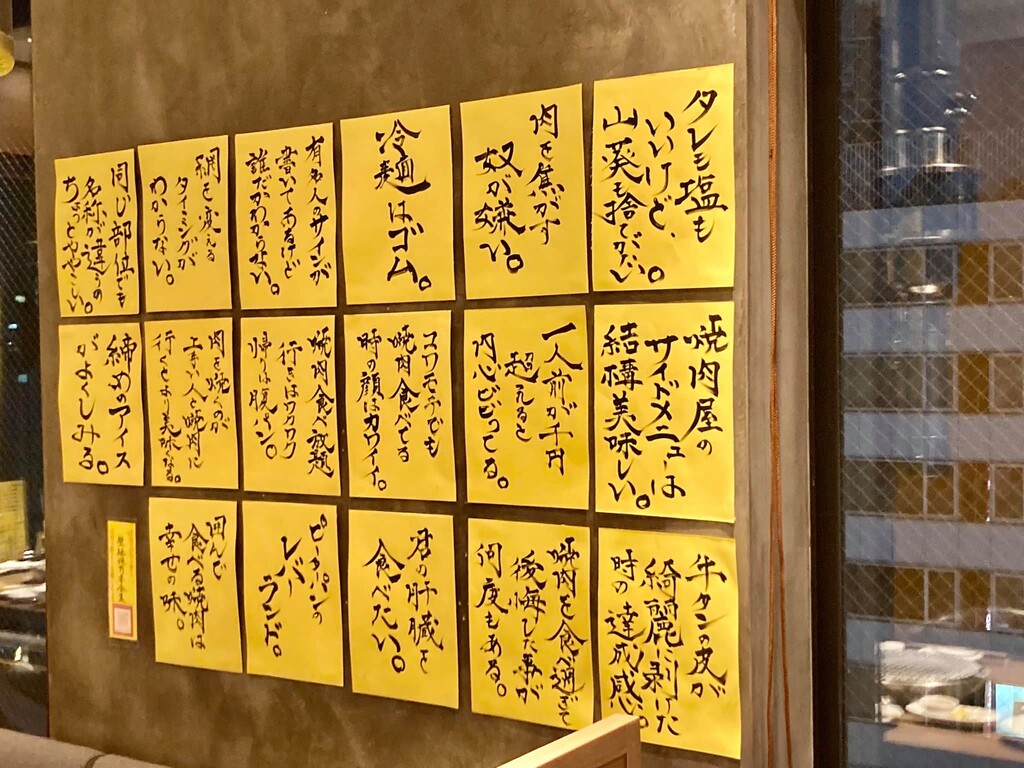 タレも塩も
いいけど、
山葵も捨てがたい。
肉を焦がす
奴が嫌い。
冷麺はゴム。
有名人のサインが
書いてあるけど
誰だかわからない。
網を変える
タイミングが
わからない。
同じ部位でも
名称が違うの
ちょっとややこしい。
焼肉屋の
サイドメニューは
結構美味しい。
一人前が千円
超えると
内心ビビってる。
コワモテでも
焼肉食べてる
時の顔はカワイイ。
焼肉食べ放題
行きはワクワク
帰りは腹パン。
肉を焼くのが
上手い人と焼肉に
行くとより美味くなる。
締めのアイス
がよくしみる。
牛タンの皮が
綺麗に剥けた
時の達成感。
焼肉を食べ過ぎて
後悔した事が
何度もある。
君の肝臓を
食べたい。
ピーターパンの
レバー
ランド。
囲んで
食べる焼肉は
幸せの味。